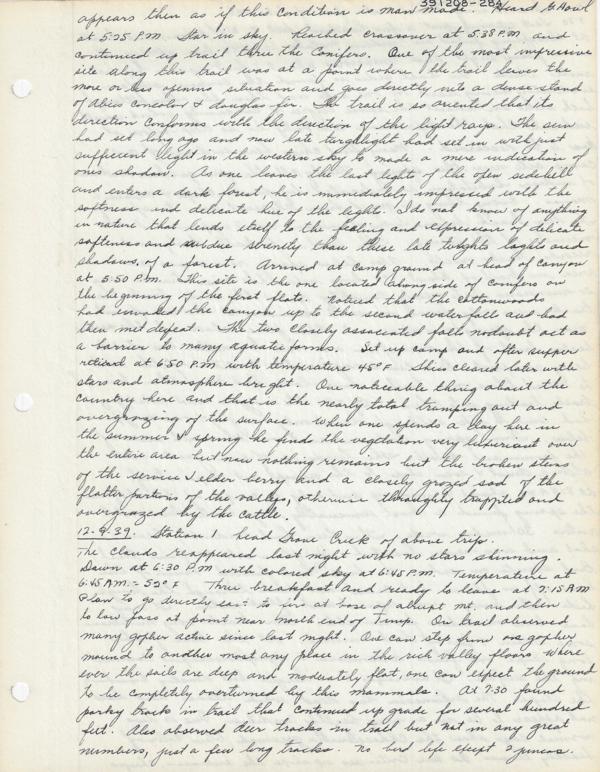 391208-284
appears then as if this condition is man made. Heard G. Howl
at 5:25 P.M. Star in sky. Reached crossover at 5:38 P.M. and
continued up trail thru the Conifers. One of the most impressive
site along this trail was at a point where the trail leaves the
more or less opening situation and goes directly into a dense stand
of Abies concolor & douglas fir. The trail is so oriented that its
direction conforms with the direction of the light rays. The sun
had set long ago and now late twighlight had set in with just
sufficient light in the western sky to made a mere indication of
ones shadow. As one leaves the last lights of the open sidehill
and enters a dark forest, he is immediately impressed with the
softness and delicate hue of the lights. I do not know of anything
in nature that lends itself to the feeling and expression of delicate
softeness and subdue serenity than these late twights lights and
shadows of a forest. Arrived at camp ground at head of canyon
at 5:50 P.M. This site is the one located along side of conifers on
the beginning of the first flats. noticed that the cottonwoods
had invaded the canyon up to the second waterfalls and had
then met defeat. The two closely associated falls nodoubt act as
a barrier to many aquatic forms. Set up camp and after supper
retired at 6:50 P.M with temperature 45°F Skies cleared later with
stars and atmosphere bright. One noticeable thing about the
country here and that is the nearly total tramping out and
overgrazing of the surface. When one spends a day here in
the summer & spring he finds the vegetation very luxuriant over
the entire area but now nothing remains but the broken stems
of the service & elder berry and a closely grazed sod of the
flatter portions of the valleys, otherwise thoroughly trappled and
overgrazed by the cattle.
12-9-39. Station 1 head Grove Creek of above trip.
The clouds reappeared last night with no stars shinning.
Dawn at 6:30 P.M with colored sky at 6:45 P.M. Temperature at
6:45 A.M. = 52° F Thru breakfast and ready to leave at 7:15 A.M
Plan to go directly east to firs at base of abrupt mt. and then
to low pass at point near north end of Timp. On trail observed
many gopher active since last night. One can step from one gopher
mound to another most any place in the rich valley floors. Where
ever the soils are deep and moderately flat, one can expect the ground
to be completely overturned by this mammals. At 7:30 found
porky tracks in trail that continued up grade for several hundred
feet. Also observed deer tracks in trail but not in any great
numbers, just a few long tracks. No bird life except 2 juncos.